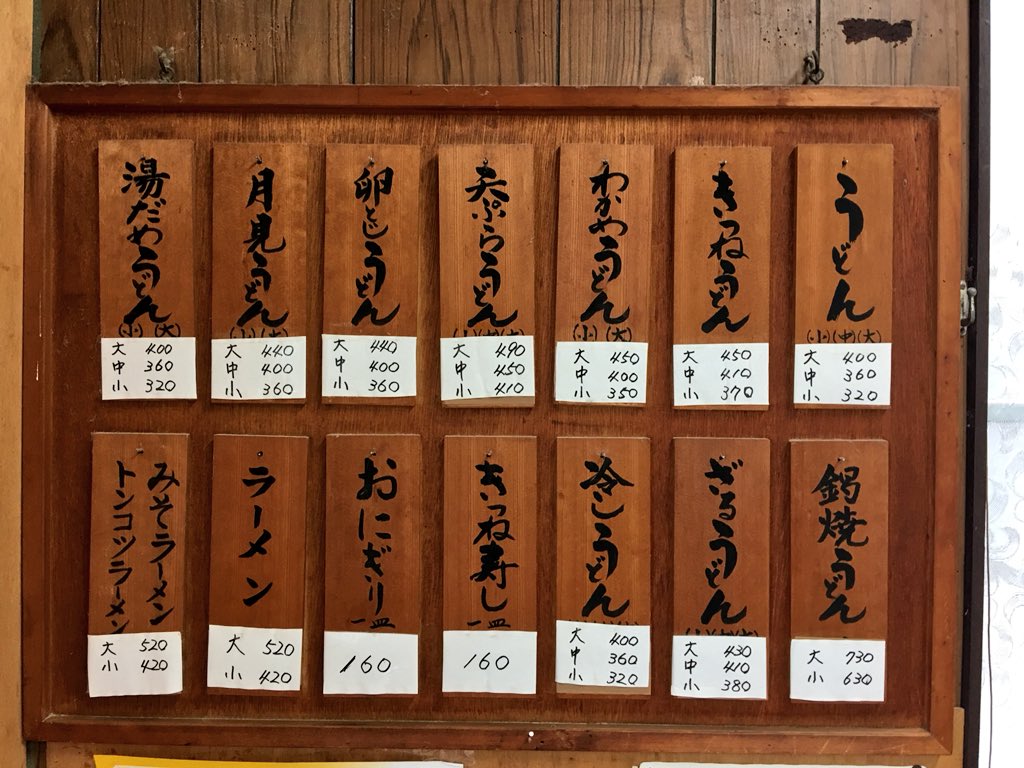 うどん
(小)(中)(大)
大 400
中 360
小 320
きつねうどん
大 450
中 410
小 370
わかめうどん
(小)(大)
大 450
中 400
小 350
天ぷらうどん
大 490
中 450
小 410
卵とじうどん
大 440
中 400
小 360
月見うどん
大 440
中 400
小 360
湯だめうどん
(小)(大)
大 400
中 360
小 320
鍋焼うどん
大 730
小 630
ざるうどん
大 430
中 410
小 380
冷しうどん
大 400
中 360
小 320
きつね寿し
一皿
160
おにぎり
一皿
160
ラーメン
大 520
小 420
みそラーメン
トンコツラーメン
大 520
小 420